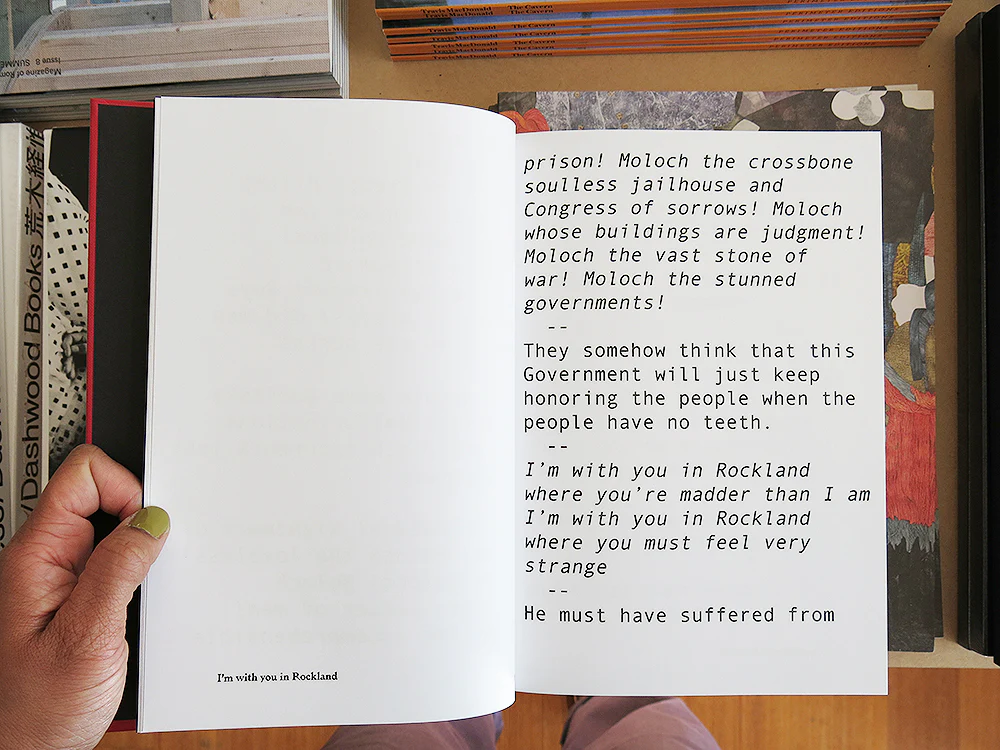 Magazine of
Issue 8 SUMME
Travis MacDonald The Cavern
Travis MacDonald The Cavern
Travis MacDonald The Cavern
Travis MacDonald The Cavern
Travis MacDonald The Cavern
/Dashwood Books 荒木経惟
prison! Moloch the crossbone
soulless jailhouse and
Congress of sorrows! Moloch
whose buildings are judgment!
Moloch the vast stone of
war! Moloch the stunned
governments!
--
They somehow think that this
Government will just keep
honoring the people when the
people have no teeth.
--
I'm with you in Rockland
where you're madder than I am
I'm with you in Rockland
where you must feel very
strange
--
He must have suffered from
I'm with you in Rockland